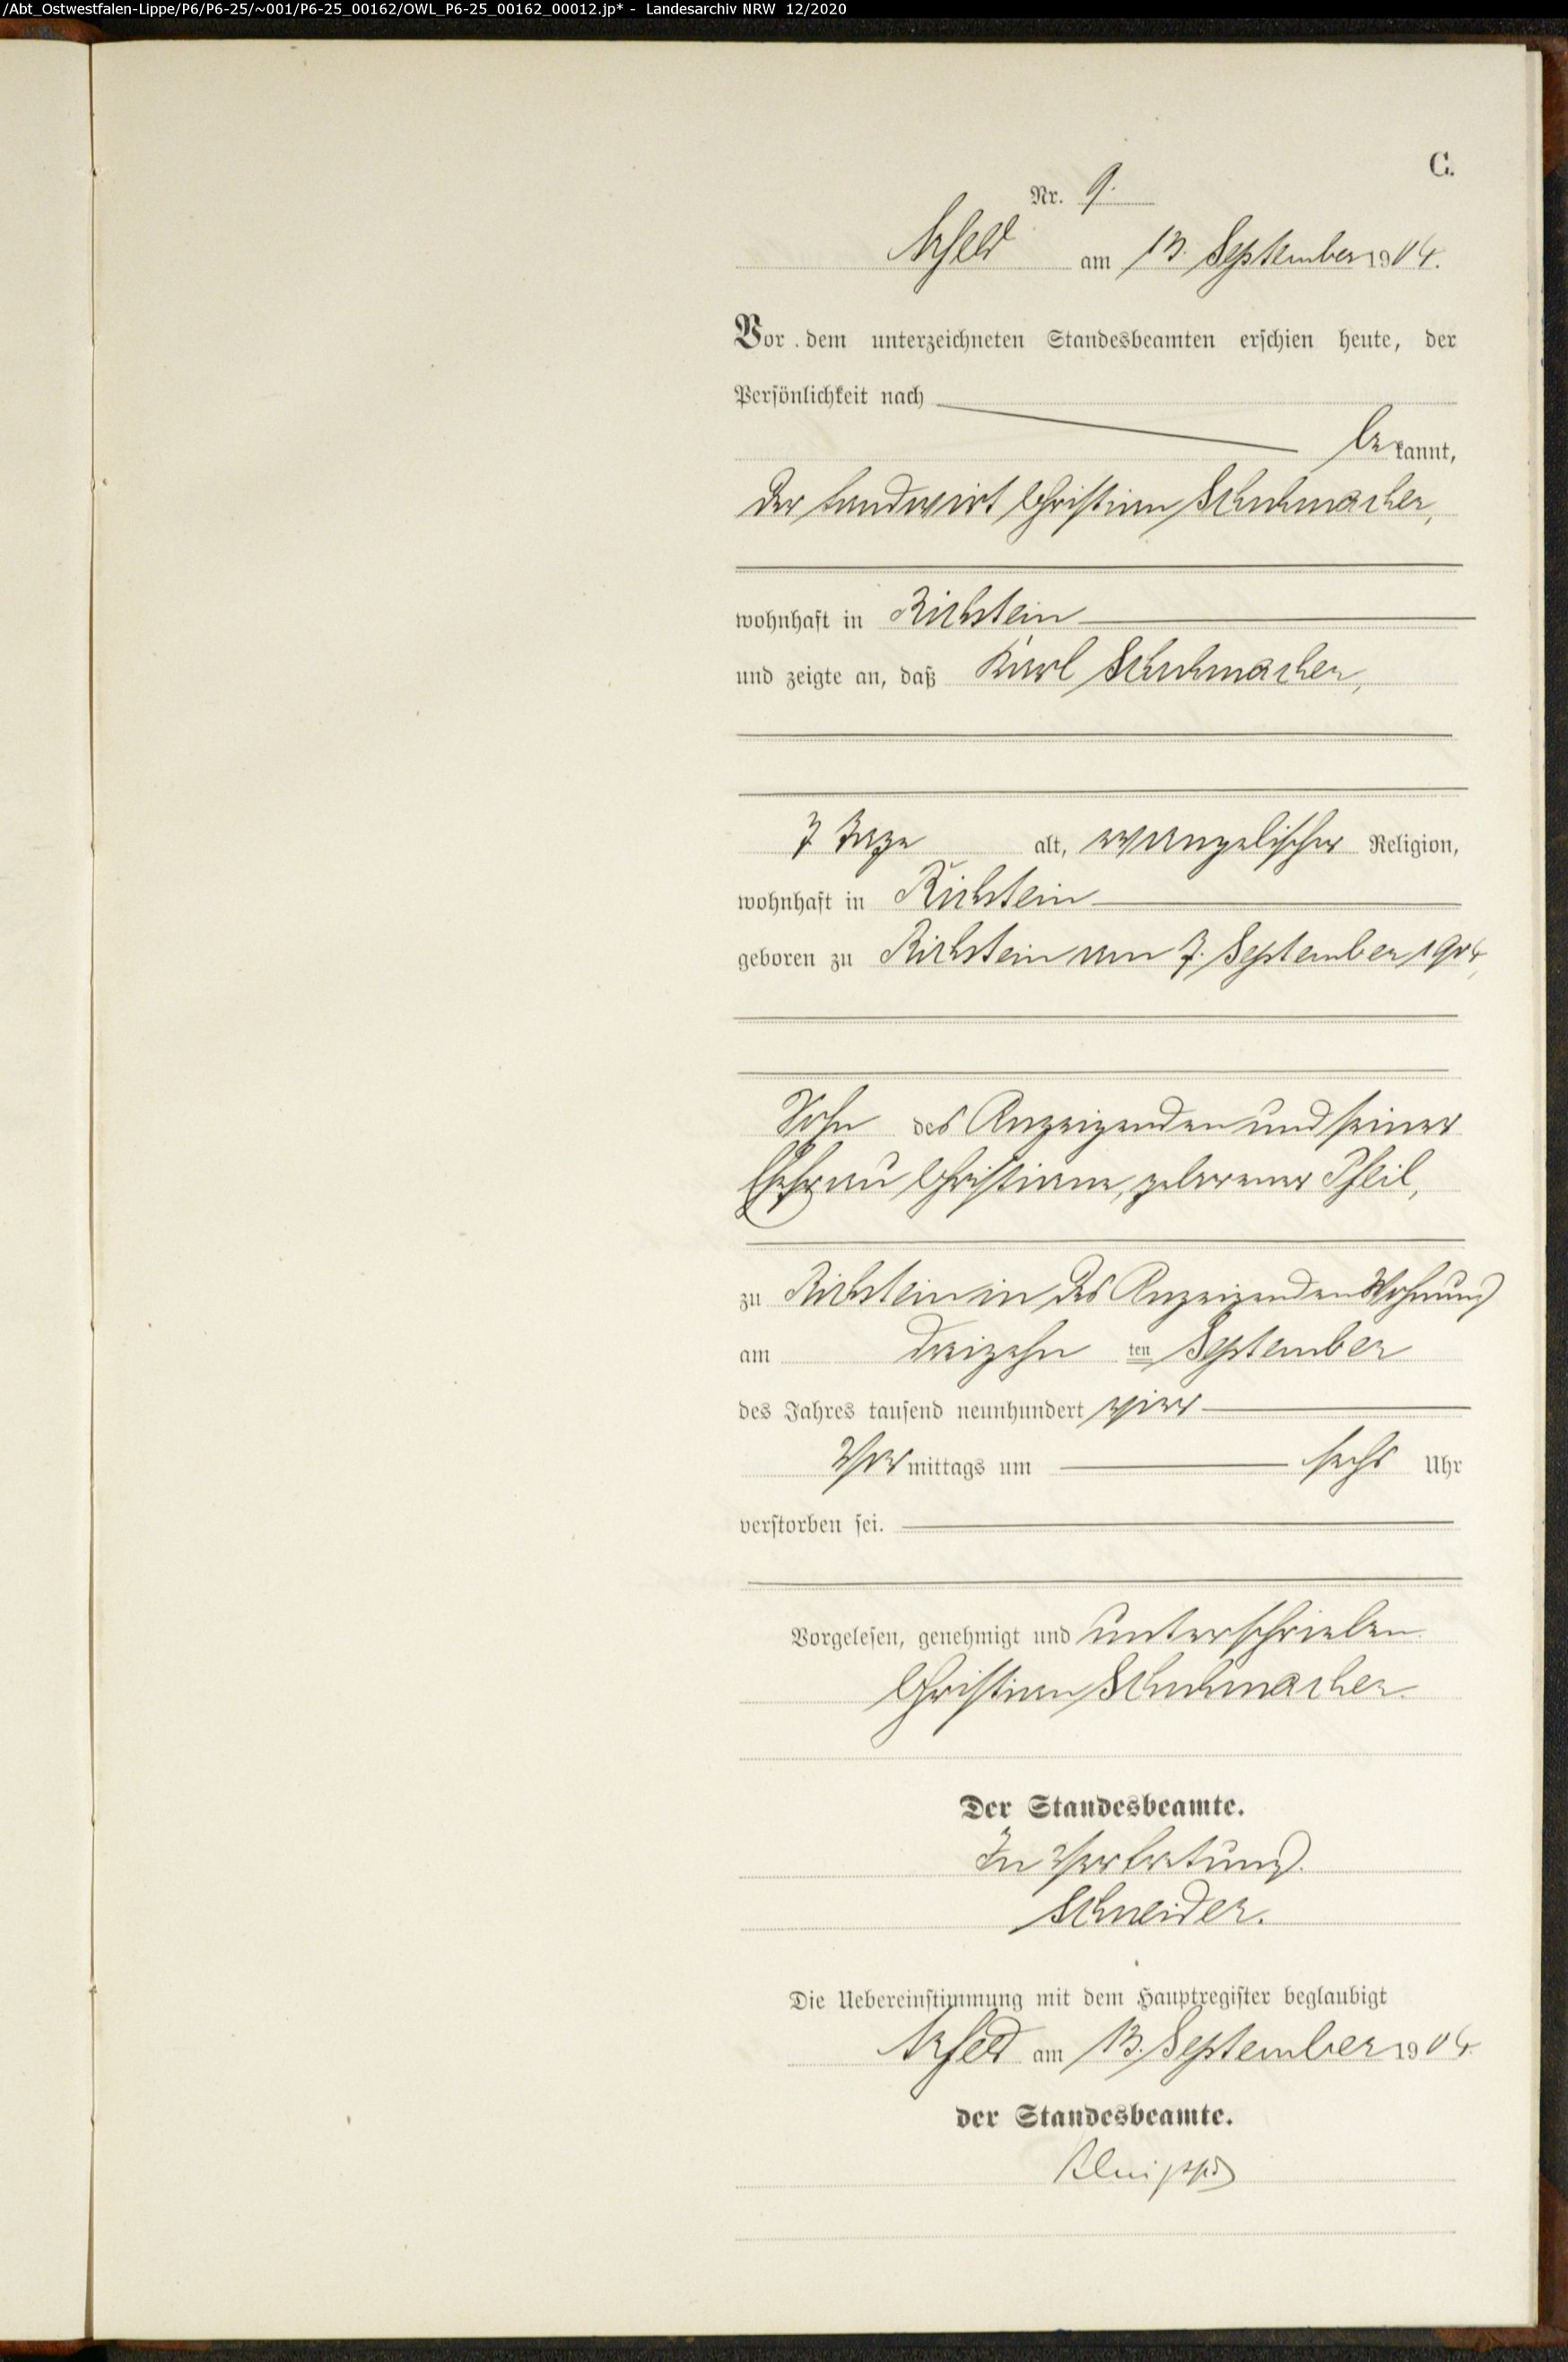 /Abt_Ostwestfalen-Lippe/P6/P6-25/~001/P6-25_00162/OWL_P6-25_00162_00012.jp* - Landesarchiv NRW 12/2020
C.
Nr. 9.
Arfeld am 13. September 1904.
Vor dem unterzeichneten Standesbeamten erschien heute, der
Persönlichkeit nach
bekannt,
der Landwirt Christian Schuhmacher,
wohnhaft in Richstein
und zeigte an, daß Karl Schuhmacher,
7 Tage alt, evangelischer Religion,
wohnhaft in Richstein
geboren zu Richstein am 7. September 1904,
Sohn des Anzeigenden und seiner
Ehefrau Christiane, geborener
zu Richstein in des Anzeigenden Wohnung
am dreizehnten September
des Jahres tausend neunhundert vier
Vormittags um sechs Uhr
verstorben sei.
Vorgelesen, genehmigt und unterschrieben
Christian Schuhmacher.
Der Standesbeamte.
In Vertretung.
Schneider.
Die Uebereinstimmung mit dem Hauptregister beglaubigt
Arfeld am 13. September 1904.
der Standesbeamte.